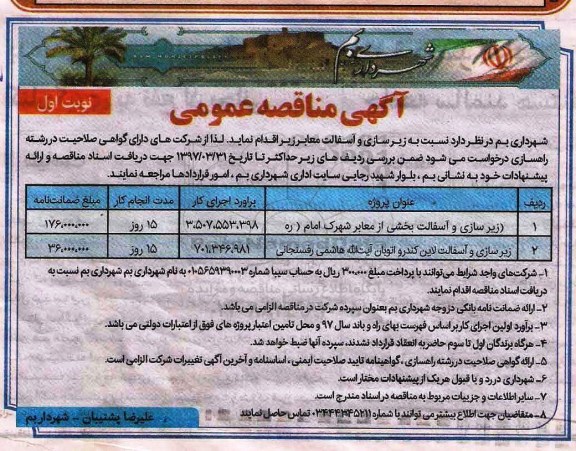 شهرداری بم
نوبت اول
آگهی مناقصه عمومی
شهرداری بم در نظر دارد نسبت به زیر سازی و آسفالت معابر زیر اقدام نماید. لذا از شرکت های دارای گواهی صلاحیت در رشته
راهسازی درخواست می شود ضمن بررسی ردیف های زیر حداکثر تا تاریخ ۱۳۹۷/۰۳/۳۱ جهت دریافت اسناد مناقصه و ارائه
پیشنهادات خود به نشانی بم ، بلوار شهید رجایی سایت اداری شهرداری بم ، امور قراردادها مراجعه نمایند.
ردیف عنوان پروژه برآورد اجرای کار مدت انجام کار مبلغ ضمانت‌نامه
۱ (زیر سازی و آسفالت بخشی از معابر شهرک امام ( ره ۳،۵۰۷،۵۵۳،۳۹۸ ۱۵ روز ۱۷۶،۰۰۰،۰۰۰
۲ زیر سازی و آسفالت لاین کندرو اتوبان آیت‌الله هاشمی رفسنجانی ۷۰۱،۳۴۶،۹۸۱ ۱۵ روز ۳۶،۰۰۰،۰۰۰
۱- شرکت‌های واجد شرایط می‌توانند با پرداخت مبلغ ۳۰۰،۰۰۰ ریال به حساب سیبا شماره ۰۱۰۵۶۵۹۳۹۰۰۳ به نام شهرداری بم شهرداری بم نسبت به
دریافت اسناد مناقصه اقدام نمایند.
۲- ارائه ضمانت نامه بانکی در وجه شهرداری بم بعنوان سپرده شرکت در مناقصه الزامی می باشد.
۳- برآورد اولین اجرای کار بر اساس فهرست بهای راه و باند سال ۹۷ و محل تامین اعتبار پروژه های فوق از اعتبارات دولتی می باشد.
۴- هرگاه برندگان اول تا سوم حاضر به انعقاد قرارداد نشدند، سپرده آنها ضبط خواهد شد.
۵- ارائه گواهی صلاحیت در رشته راهسازی ، گواهینامه تایید صلاحیت ایمنی ، اساسنامه و آخرین آگهی تغییرات شرکت الزامی است.
۶- شهرداری در رد و یا قبول هر یک از پیشنهادات مختار است.
۷- سایر اطلاعات و جزییات مربوط به مناقصه در اسناد مندرج است.
۸- متقاضیان جهت اطلاع بیشتر می توانند با شماره ۰۳۴۴۴۳۴۵۲۱۱ تماس حاصل نمایند
علیرضا پشتیبان - شهردار بم